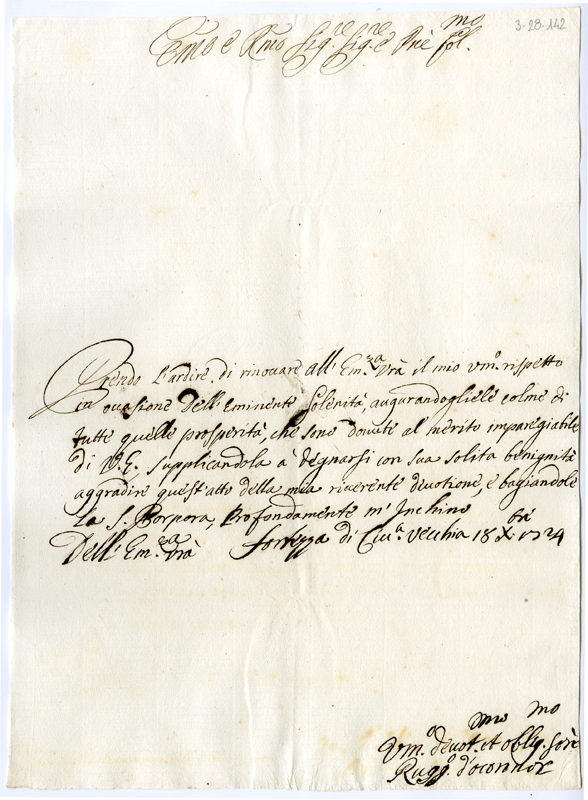 3-28-142
Emo e Rmo Sig.re Sig.re e Prè Col.mo
Prendo L'ardire di rinovare all' Em.za Vrà il mio vm.o rispetto
in ocasione dell' eminente solenità, augurandogliele colme di
tutte quelle prosperità, che sono dovute al merito impareggiabile
di V.E. supplicandola à degnarsi con sua solita benignità
aggradire quest'atto della mia riverente divotione, e bagiandole
La S. Porpora, Profondamente m' Inchino
Dell' Em.za Vrà Fortezza di Ciu.a Vecchia 18 X.bre 1724
Vm.o devot.mo et oblig.mo Sorè
Rugg.o d'oconnor